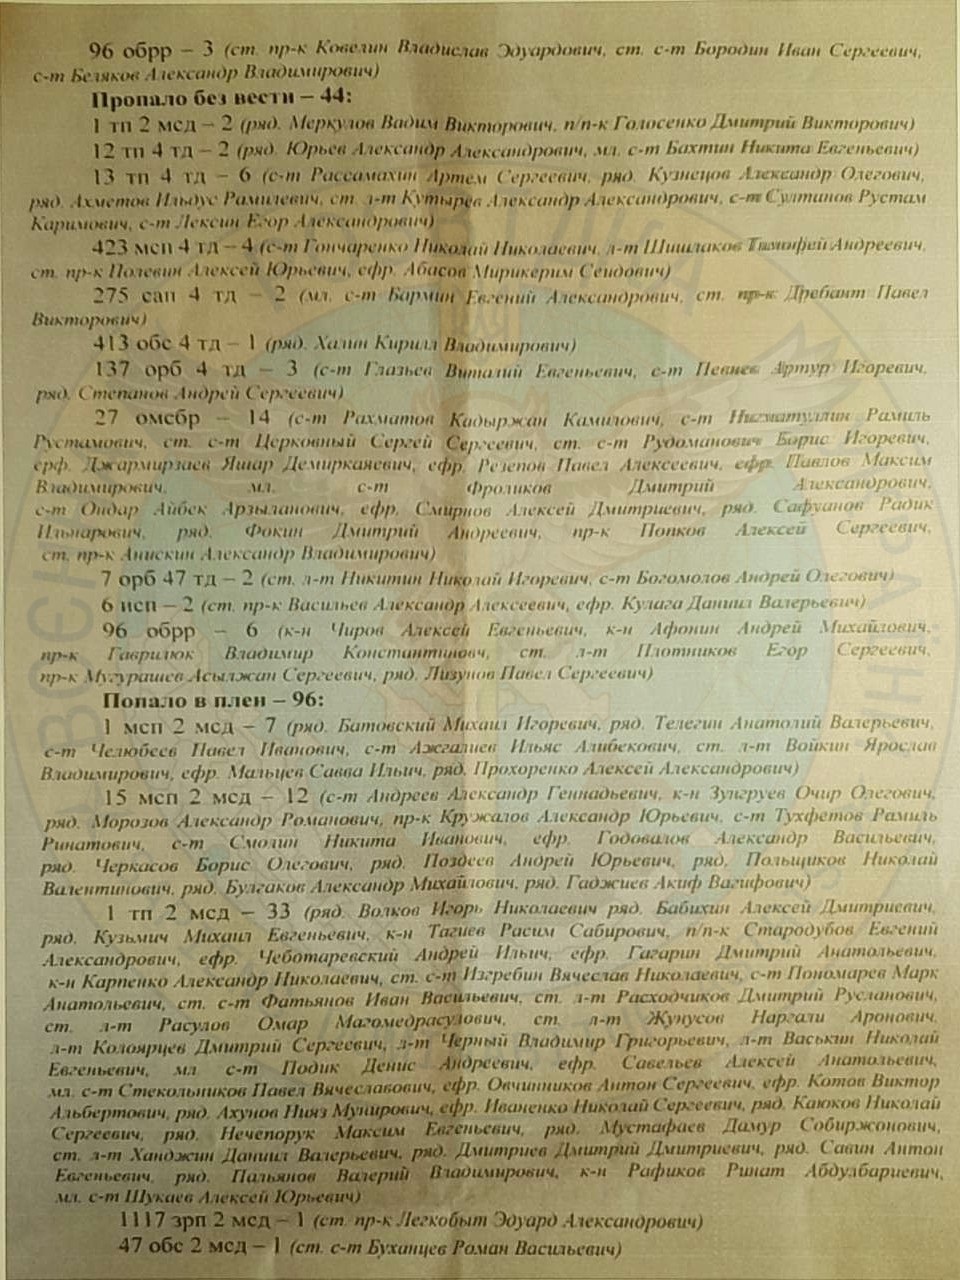 96 обрр – 3 (ст. пр-к Ковелин Владислав Эдуардович, ст. с-т Бородин Иван Сергеевич,
с-т Беляков Александр Владимирович)
Пропало без вести – 44:
1 тп 2 мсд – 2 (ряд. Меркулов Вадим Викторович, п/п-к Голосенко Дмитрий Викторович)
12 тп 4 тд – 2 (ряд. Юрьев Александр Александрович, мл. с-т Бахтин Никита Евгеньевич)
13 тп 4 тд – 6 (с-т Рассамахин Артем Сергеевич, ряд. Кузнецов Александр Олегович,
ряд. Ахметов Ильдус Рамилевич, ст. л-т Кутырев Александр Александрович, с-т Султанов Рустам
Каримович, с-т Лексин Егор Александрович)
423 мсп 4 тд – 4 (с-т Гончаренко Николай Николаевич, л-т Шишлаков Тимофей Андреевич,
ст. пр-к Полевин Алексей Юрьевич, ефр. Абасов Мирикерим Сеидович)
275 сап 4 тд – 2 (мл. с-т Бармин Евгений Александрович, ст. пр-к Дребант Павел
Викторович)
413 обс 4 тд – 1 (ряд. Халин Кирилл Владимирович)
137 орб 4 тд – 3 (с-т Глазьев Виталий Евгеньевич, с-т Певнев Артур Игоревич,
ряд. Степанов Андрей Сергеевич)
27 омсбр – 14 (с-т Рахматов Кадыржан Камилович, с-т Нигматуллин Рамиль
Рустамович, ст. с-т Церковный Сергей Сергеевич, ст. с-т Рудоманович Борис Игоревич,
ерф. Джармирзаев Яшар Демиркаяевич, ефр. Резепов Павел Алексеевич, ефр. Павлов Максим
Владимирович, мл. с-т Фроликов Дмитрий Александрович,
с-т Ондар Айбек Арзыланович, ефр. Смирнов Алексей Дмитриевич, ряд. Сафуанов Радик
Ильнарович, ряд. Фокин Дмитрий Андреевич, пр-к Попков Алексей Сергеевич,
ст. пр-к Анискин Александр Владимирович)
7 орб 47 тд – 2 (ст. л-т Никитин Николай Игоревич, с-т Богомолов Андрей Олегович)
6 исп – 2 (ст. пр-к Васильев Александр Алексеевич, ефр. Кулага Даниил Валерьевич)
96 обрр – 6 (к-н Чиров Алексей Евгеньевич, к-н Афонин Андрей Михайлович,
пр-к Гаврилюк Владимир Константинович, ст. л-т Плотников Егор Сергеевич,
пр-к Мугурашев Асылжан Сергеевич, ряд. Лизунов Павел Сергеевич)
Попало в плен – 96:
1 мсп 2 мсд – 7 (ряд. Батовский Михаил Игоревич, ряд. Телегин Анатолий Валерьевич,
с-т Челюбеев Павел Иванович, с-т Ажгалиев Ильяс Алибекович, ст. л-т Войкин Ярослав
Владимирович, ефр. Мальцев Савва Ильич, ряд. Прохоренко Алексей Александрович)
15 мсп 2 мсд – 12 (с-т Андреев Александр Геннадьевич, к-н Зунгруев Очир Олегович,
ряд. Морозов Александр Романович, пр-к Кружалов Александр Юрьевич, с-т Тухфетов Рамиль
Ринатович, с-т Смолин Никита Иванович, ефр. Годовалов Александр Васильевич,
ряд. Черкасов Борис Олегович, ряд. Поздеев Андрей Юрьевич, ряд. Польщиков Николай
Валентинович, ряд. Булгаков Александр Михайлович, ряд. Гаджиев Акиф Вагифович)
1 тп 2 мсд – 33 (ряд. Волков Игорь Николаевич ряд. Бабихин Алексей Дмитриевич,
ряд. Кузьмич Михаил Евгеньевич, к-н Тагиев Расим Сабирович, п/п-к Стародубов Евгений
Александрович, ефр. Чеботаревский Андрей Ильич, ефр. Гагарин Дмитрий Анатольевич,
к-н Карпенко Александр Николаевич, ст. с-т Изгребин Вячеслав Николаевич, с-т Пономарев Марк
Анатольевич, ст. с-т Фатьянов Иван Васильевич, ст. л-т Расходчиков Дмитрий Русланович,
ст. л-т Расулов Омар Магомедрасулович, ст. л-т Жунусов Наргали Аронович,
л-т Колоярцев Дмитрий Сергеевич, л-т Черный Владимир Григорьевич, л-т Васькин Николай
Евгеньевич, мл с-т Подик Денис Андреевич, ефр. Савельев Алексей Анатольевич,
мл. с-т Стекольников Павел Вячеславович, ефр. Овчинников Антон Сергеевич, ефр. Котов Виктор
Альбертович, ряд. Ахунов Нияз Мунирович, ефр. Иваненко Николай Сергеевич, ряд. Каюков Николай
Сергеевич, ряд. Нечепорук Максим Евгеньевич, ряд. Мустафаев Дамур Собиржонович,
ст. л-т Ханджин Даниил Валерьевич, ряд. Дмитриев Дмитрий Дмитриевич, ряд. Савин Антон
Евгеньевич, ряд. Пальянов Валерий Владимирович, к-н Рафиков Ринат Абдулбариевич,
мл. с-т Шукаев Алексей Юрьевич)
1117 зрп 2 мсд – 1 (ст. пр-к Легкобыт Эдуард Александрович)
47 обс 2 мсд – 1 (ст. с-т Буханцев Роман Васильевич)